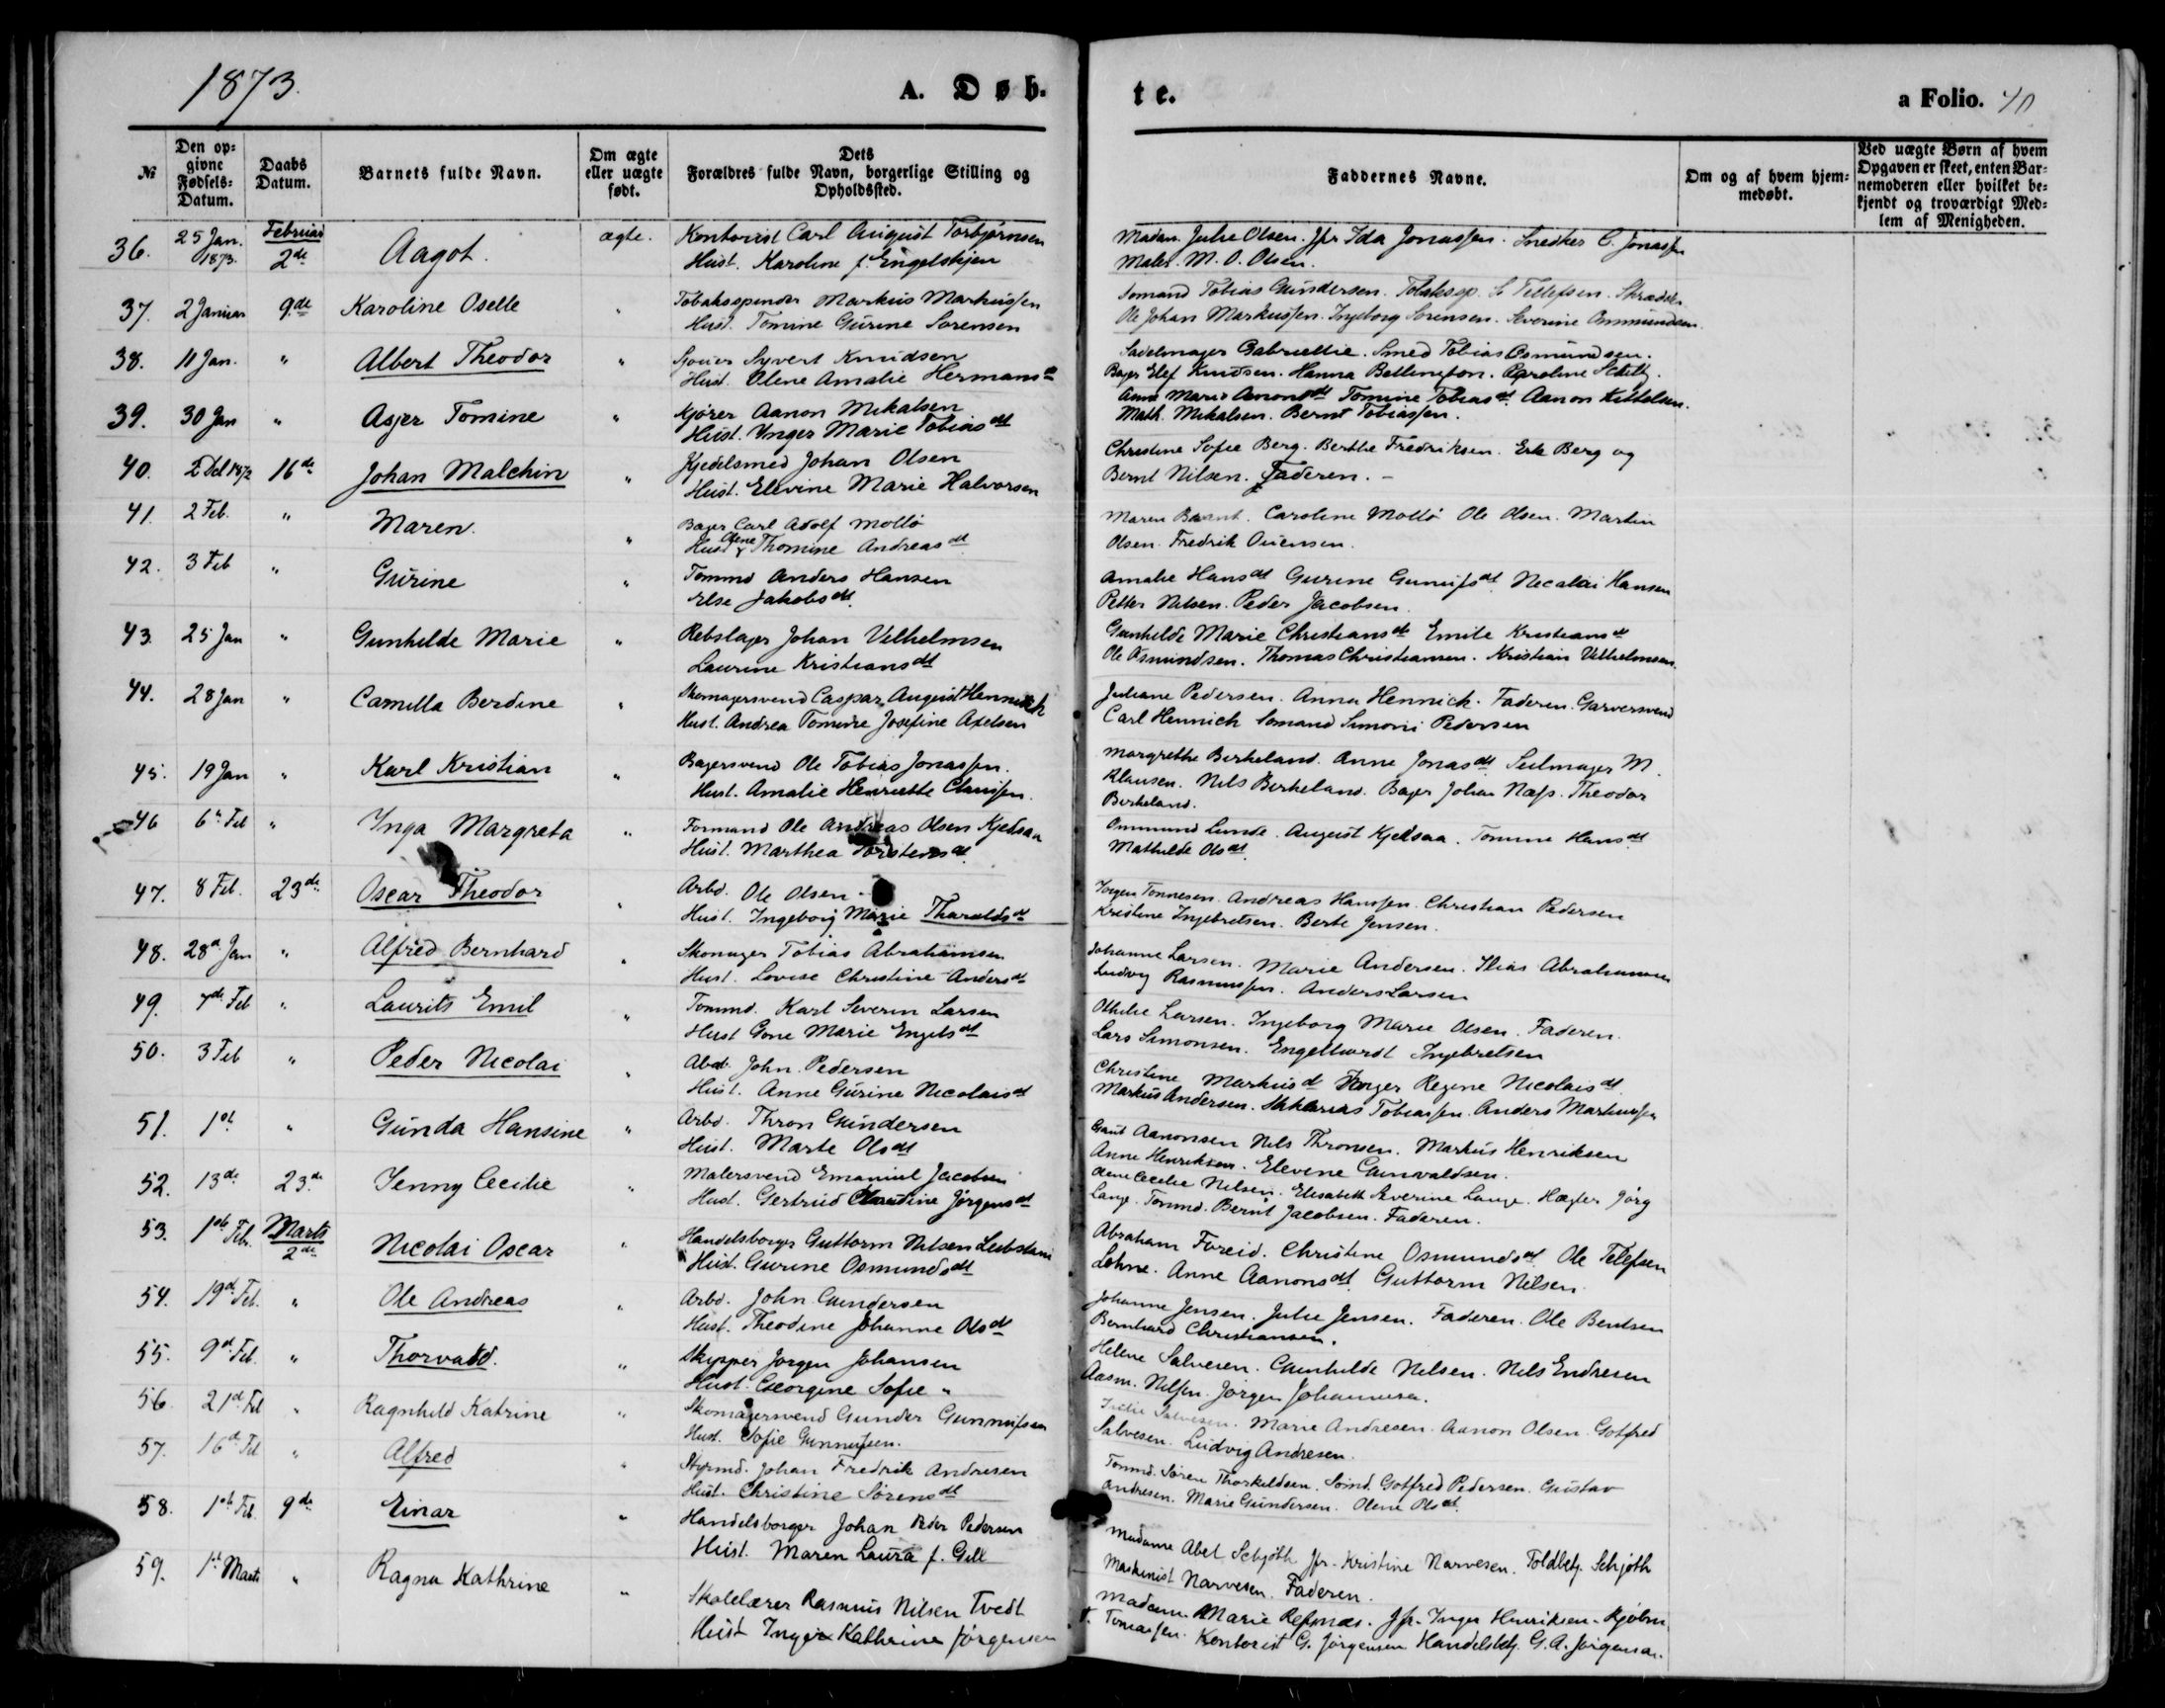 1873.
A. Døb-
te.
a Folio. 40
№
Den op-
givne
Fødsels-
Datum.
Daabs
Datum.
Barnets fulde Navn.
Om ægte
eller uægte
født.
Dets
Forældres fulde Navn, borgerlige Stilling og
Opholdssted.
Faddernes Navne.
Om og af hvem hjem-
medøbt.
Ved uægte Børn af hvem
Opgaven er skeet, enten Bar-
nemoderen eller hvilket be-
kjendt og troværdigt Med-
lem af Menigheden.
36. 25 Jan. 1873. Februar 2de Aagot. ægte. Kontorist Carl August Torbjørnsen
Hust. Karoline f. Engelskjen
Madam Julie Olsen. Jfr Ida Jonassen. Snedker C. Jonassen
Maler M. O. Olsen.
37. 2 Januar 9de Karoline Oselle " Tobaksspinder Markus Markussen
Hust. Tomine Gurine Sorensen
Somand Tobias Gundersen. Tobakssp. S Tellefsen. Skrædder
Ole Johan Markussen. Ingeborg Sorensen. Severine Ommundsen.
38. 11 Jan. " Albert Theodor " Syvert Knudsen
Hust. Olene Amalie Hermansdt
Sadelmager Gabriellie. Smed Tobias Osmundsen.
Bager Elef Knudsen. Hanna Bellington. Karoline Schultz.
39. 30 Jan " Asjer Tomine " Kjører Aanon Mikalsen
Hust. Inger Marie Tobiasdt
Anne Marie Aanonsdt Tomine Tobiasdt. Aanon Kittelsen.
Math. Mikalsen. Bernt Tobiassen.
40. 2 Del 1872 16de Johan Malchin " Kjedelsmed Johan Olsen
Hust. Elevine Marie Halvorsen
Christine Sofie Berg. Berthe Fredriksen. Erk Berg og
Bernt Nilsen. Faderen. -
41. 2 Feb. " Maren. " Bager Carl Adolf Mollö
Hust. Olene Thomine Andreasdt
Maren Caroline Mollö Ole Olsen. Martin
Olsen. Fredrik Ouensen.
42. 3 Feb " Gurine " Tommd Anders Hansen
Else Jakobsdt.
Amalie Hansdt Gurine Gunufsdt. Nicolai Hansen
Petter Nilsen. Peder Jacobsen.
43. 25 Jan " Gunhilde Marie " Rebslager Johan Vilhelmsen
Laurine Kristiansdt
Gunhilde Marie Christiansdt Emile Kristiansdt
Ole Osmundsen. Thomas Christiansen. Kristian Vilhelmsen.
44. 28 Jan " Camilla Berdine " Skomagersvend Caspar August Hennich
Hust. Andrea Tomine Josefine Axelsen
Juliane Pedersen. Anna Hennich. Faderen. Garversvend
Carl Hennich Somand Simoni Pedersen
45. 19 Jan " Karl Kristian " Bagersvend Ole Tobias Jonassen.
Hust. Amalie Henriette Claussen.
Margrethe Birkeland. Anne Jonasdt. Seilmager M.
Klausen. Nils Birkeland. Bager Johan Næss. Theodor
Birkeland.
46 6te Feb " Inga Margreta " Formand Ole Andreas Olsen Kjelsaa
Hust. Marthea Torstensdt.
Ommund Lunde. August Kjelsaa. Tomine Hansdt.
Mathilde Olsdt.
47. 8 Feb. 23de Oscar Theodor " Arbd. Ole Olsen
Hust. Ingeborg Marie Tharaldsdt
Jorgen Tonnesen. Andreas Hanssen. Christian Pedersen
Kristine Ingebretsen. Berte Jensen.
48. 28de Jan " Alfred Bernhard " Skomager Tobias Abrahamsen
Hust. Lovise Christine Andersdt
Johanne Larsen. Marie Andersen. Ilias Abrahamsen
Ludvig Rasmussen. Anders Larsen
49. 7de Feb " Laurits Emil " Tommd. Karl Severin Larsen
Hust Gone Marie Engelsdt
Othilie Larsen. Ingeborg Marie Olsen. Faderen.
Lars Simonsen. Engelhardt Ingebretsen
50. 3 Feb " Peder Nicolai " Abd. John Pedersen
Hust. Anne Gurine Nicolaisdt
Christine Markusdt Inger Regine Nicolaisdt.
Markus Andersen. Sakarias Tobiassen. Anders Markussen
51. 1ste " Gunda Hansine " Arbd. Thron Gundersen
Hust. Marte Olsdt
Gaut Aanonsen Nils Thronsen. Markus Henriksen
Anne Henriksen. Elevine Gunvaldsen.
52. 13de 23de Jenny Cecilie " Malersvend Emanuel Jacobsen
Hust. Gertrud Claudine Jörgensdt
Oline Cecilie Nilsen. Elisabeth Severine Lange. Hægler Jörg
Lange. Tommd. Bernt Jacobsen. Faderen.
53. 1ste Feb. Marts 2de Nicolai Oscar " Handelsborger Guttorm Nilsen
Hust. Gurine Osmundsdt
Abraham Foreid. Christine Osmundsdt Ole Telefsen
Lohne. Anne Aanonsdt. Guttorm Nilsen.
54. 19de Feb. " Ole Andreas " Arbd. John Gundersen
Hust. Theodine Johanne Olsdt
Johanne Jensen. Julie Jensen. Faderen. Ole Bentsen
Bernhard Christiansen.
55. 9de Feb. " Thorvald. " Skipper Jorgen Johansen
Hust. Georgine Sofie "
Helene Salvesen. Gunhilde Nilsen. Nils Endresen
Aasm. Nilsen. Jörgen Johannesen.
56. 21de Feb " Ragnhild Katrine " Skomagersvend Gunder Gunnufsen
Hust. Sofie Gunnufsen.
Julie Salvesen. Marie Andresen. Aanon Olsen. Gotfred
Salvesen. Ludvig Andresen.
57. 16de Feb " Alfred " Styrmd. Johan Fredrik Andresen
Hust. Christine Sørensdt
Tommd. Søren Thorkildsen. Sömd. Gotfred Pedersen. Gustav
Andresen. Marie Gundersen. Olene Olsdt.
58. 1ste Feb. 9de Einar " Handelsborger Johan Peder Pedersen
Hust. Maren Laura f. Gill
Madame Abel Schjøth Jfr. Kristine Narvesen. Toldbetj. Schjøth
Maskinist Narvesen. Faderen.
59. 1st Marts " Ragna Kathrine " Skolelærer Rasmus Nilsen Tvedt
Hust Inger Kathrine Jørgensen
Madam Marie Refsnæs. Jfr. Inger Henriksen. Kjøbm.
T. Tomassen. Kontorist G. Jörgensen Handelsbetj. G. A. Jörgensen.